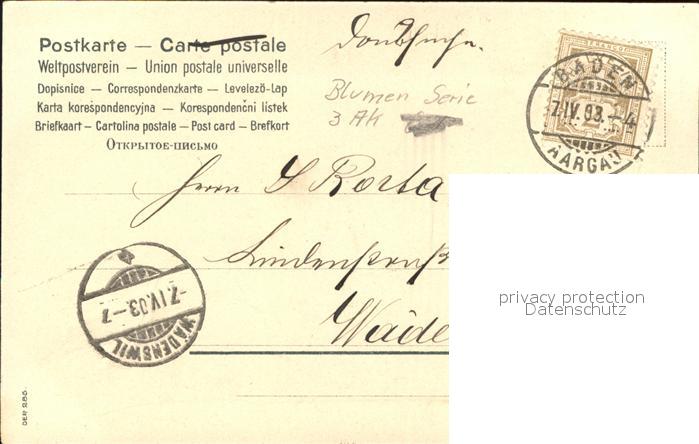 Postkarte — Carte postale
Weltpostverein — Union postale universelle
Dopisnice — Correspondenzkarte — Levelező-Lap
Karta korespondencyjna — Korespondenčni listek
Briefkaart — Cartolina postale — Post card — Brefkort
Открытое-письмо
Drucksache.
Blumen Serie
3 AK
BADEN
-7.IV.03.-4
AARGAU
FRANCO
2
Herrn
Lindenstraß
Wäde
-7.IV.03.-7
WÄDENSWIL
privacy protection
Datenschutz
DER 286.